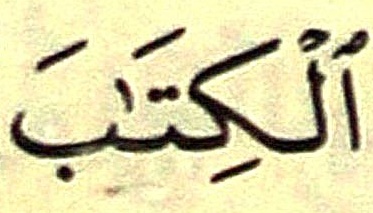 ٱلْكِتَـٰبَ